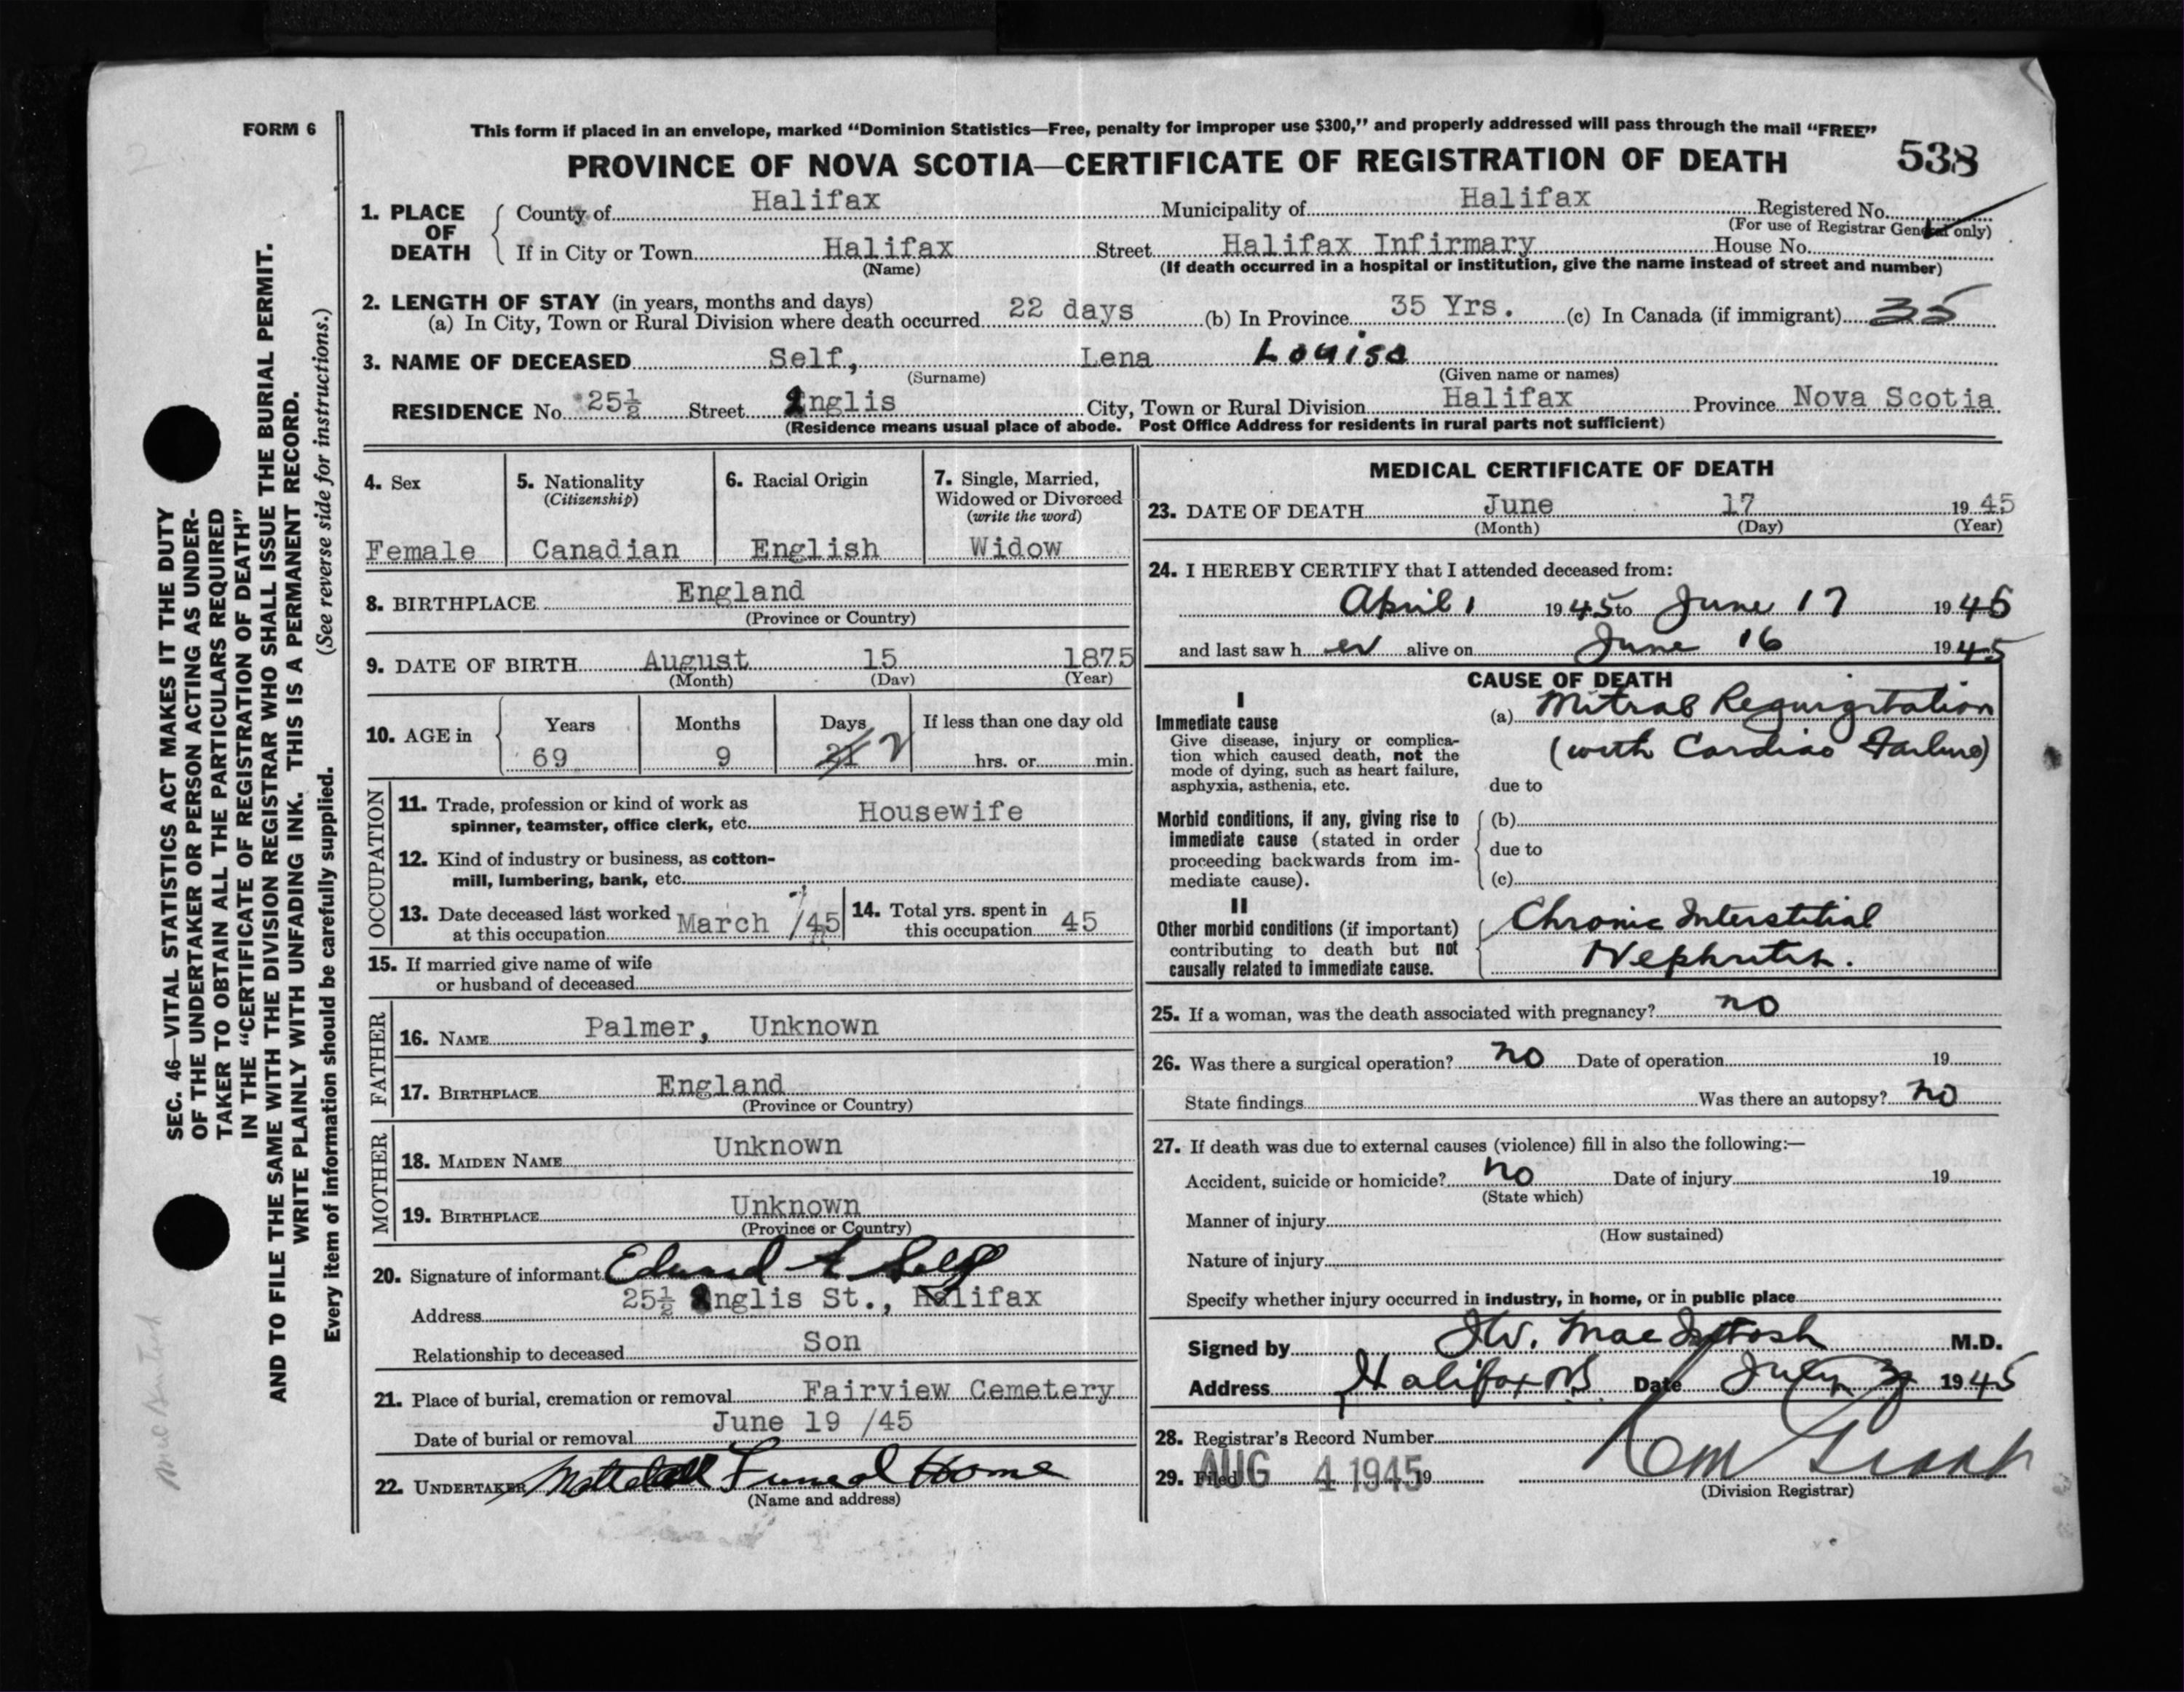 FORM 6
This form if placed in an envelope, marked “Dominion Statistics—Free, penalty for improper use $300,” and properly addressed will pass through the mail “FREE”
PROVINCE OF NOVA SCOTIA—CERTIFICATE OF REGISTRATION OF DEATH 538
1. PLACE OF DEATH
County of Halifax Municipality of Halifax Registered No.
(For use of Registrar General only)
If in City or Town Halifax Street Halifax Infirmary House No.
(Name) (If death occurred in a hospital or institution, give the name instead of street and number)
2. LENGTH OF STAY (in years, months and days)
(a) In City, Town or Rural Division where death occurred 22 days (b) In Province 35 Yrs. (c) In Canada (if immigrant) 35
3. NAME OF DECEASED Self, Lena Louisa
(Surname) (Given name or names)
RESIDENCE No. 25½ Street Inglis City, Town or Rural Division Halifax Province Nova Scotia
(Residence means usual place of abode. Post Office Address for residents in rural parts not sufficient)
4. Sex
Female
5. Nationality
(Citizenship)
Canadian
6. Racial Origin
English
7. Single, Married,
Widowed or Divorced
(write the word)
Widow
8. BIRTHPLACE England
(Province or Country)
9. DATE OF BIRTH August 15 1875
(Month) (Day) (Year)
10. AGE in
Years Months Days If less than one day old
69 9 21 2 hrs. or min.
OCCUPATION
11. Trade, profession or kind of work as
spinner, teamster, office clerk, etc. Housewife
12. Kind of industry or business, as cotton-
mill, lumbering, bank, etc.
13. Date deceased last worked
at this occupation March /45
14. Total yrs. spent in
this occupation 45
15. If married give name of wife
or husband of deceased
FATHER
16. NAME Palmer, Unknown
17. BIRTHPLACE England
(Province or Country)
MOTHER
18. MAIDEN NAME Unknown
19. BIRTHPLACE Unknown
(Province or Country)
20. Signature of informant Edward A Self
Address 25½ Inglis St., Halifax
Relationship to deceased Son
21. Place of burial, cremation or removal Fairview Cemetery
Date of burial or removal June 19 /45
22. UNDERTAKER Funeral Home
(Name and address)
MEDICAL CERTIFICATE OF DEATH
23. DATE OF DEATH June 17 19 45
(Month) (Day) (Year)
24. I HEREBY CERTIFY that I attended deceased from:
April 1 19 45 to June 17 19 45
and last saw h er alive on June 16 19 45
CAUSE OF DEATH
I
Immediate cause
Give disease, injury or complica-
tion which caused death, not the
mode of dying, such as heart failure,
asphyxia, asthenia, etc.
(a) Mitral Regurgitation
(with Cardiac Failure)
due to
Morbid conditions, if any, giving rise to
immediate cause (stated in order
proceeding backwards from im-
mediate cause).
(b)
due to
(c)
II
Other morbid conditions (if important)
contributing to death but not
causally related to immediate cause.
Chronic Interstitial
Nephritis.
25. If a woman, was the death associated with pregnancy? no
26. Was there a surgical operation? no Date of operation 19
State findings Was there an autopsy? no
27. If death was due to external causes (violence) fill in also the following:—
Accident, suicide or homicide? no Date of injury 19
(State which)
Manner of injury
(How sustained)
Nature of injury
Specify whether injury occurred in industry, in home, or in public place
Signed by J.W. MacIntosh M.D.
Address Halifax NS Date July 3 1945
28. Registrar's Record Number
29. Filed AUG 4 1945 19
(Division Registrar)
SEC. 46—VITAL STATISTICS ACT MAKES IT THE DUTY
OF THE UNDERTAKER OR PERSON ACTING AS UNDER-
TAKER TO OBTAIN ALL THE PARTICULARS REQUIRED
IN THE “CERTIFICATE OF REGISTRATION OF DEATH”
AND TO FILE THE SAME WITH THE DIVISION REGISTRAR WHO SHALL ISSUE THE BURIAL PERMIT.
WRITE PLAINLY WITH UNFADING INK. THIS IS A PERMANENT RECORD.
Every item of information should be carefully supplied. (See reverse side for instructions.)